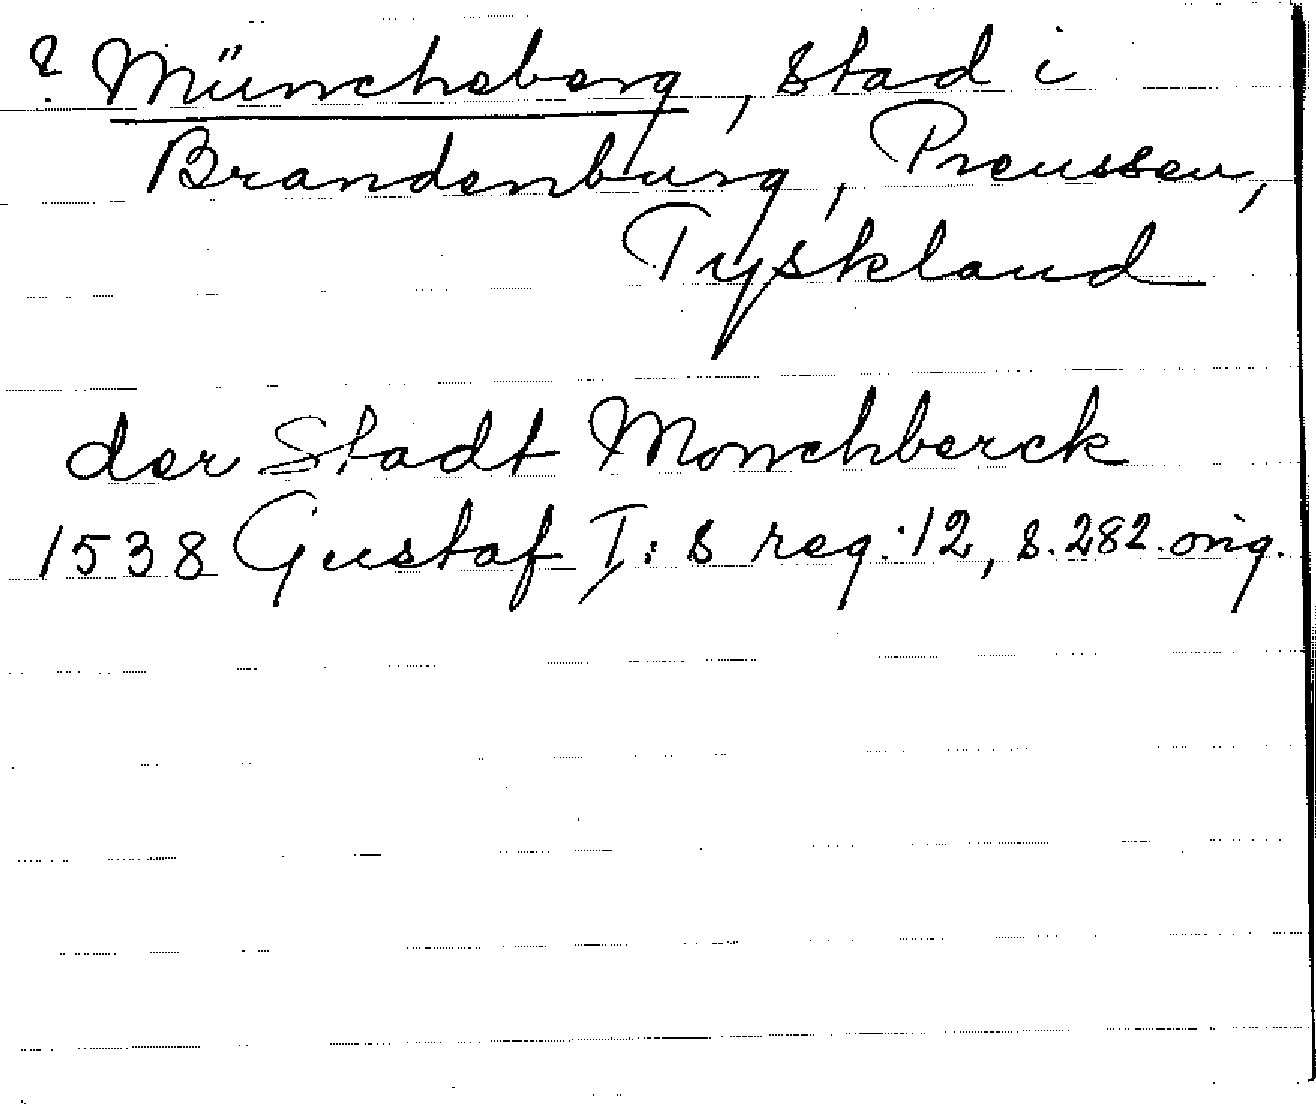 ? Müncheberg, stad i
Brandenburg, Preussen,
Tyskland
der Stadt Monchberck
1538 Gustaf I:s reg. 12, s. 282. orig.